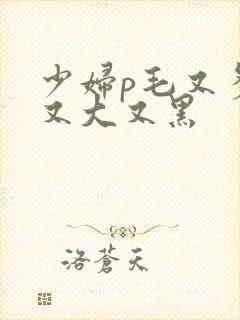 少婦p毛又多
又大又黑
洛蒼天